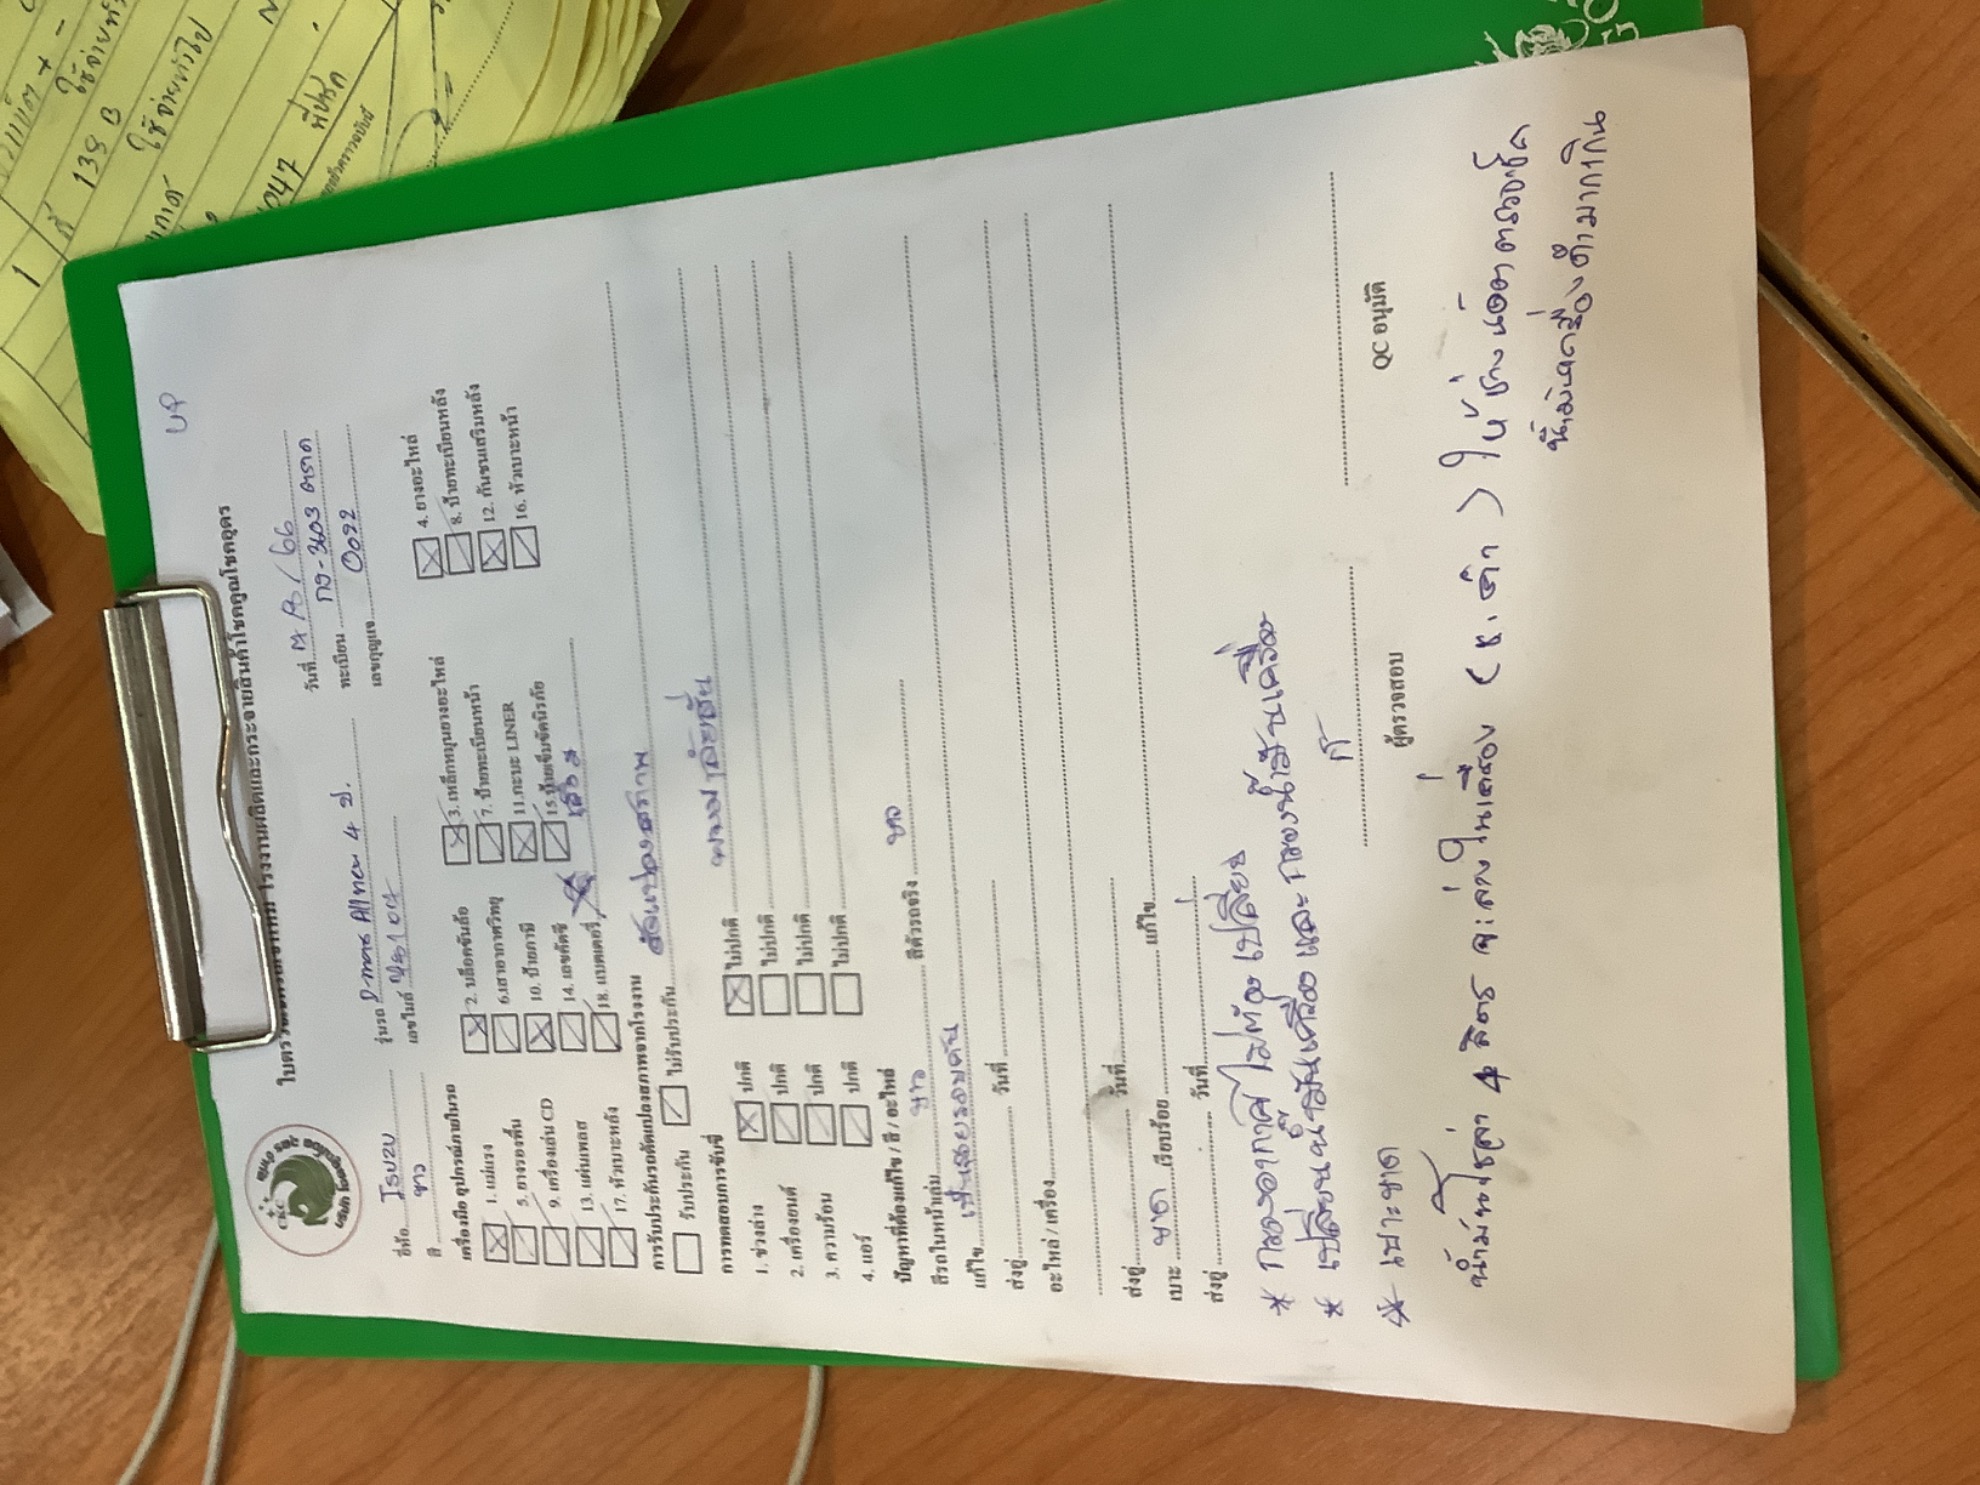 UP
โรงงานผลิตและกระจายสินค้าโชคคูณโชคอุดร
CKC
ยี่ห้อ ISUZU รุ่นรถ D-max All new 4 ป. วันที่ /66
สี ขาว เลขไมล์ ทะเบียน 3603 ตราด
เลขกุญแจ 0092
เครื่องมือ อุปกรณ์ภายในรถ
1. แม่แรง 2. บล็อคขันล้อ 3. เหล็กหมุนยางอะไหล่ 4. ยางอะไหล่
5. ยางรองพื้น 6.เสาอากาศวิทยุ 7. ป้ายทะเบียนหน้า 8. ป้ายทะเบียนหลัง
9. เครื่องเล่น CD 10. ป้ายภาษี 11.กระบะ LINER 12. กันชนเสริมหลัง
13. แผ่นเพลส 14. เลขคัสซี 15.ป้ายเข็มขัดนิรภัย 16. หัวเบาะหน้า
17. หัวเบาะหลัง 18. แบตเตอรี่
การรับประกันรถดัดแปลงสภาพจากโรงงาน ดัดแปลงสภาพ
รับประกัน ไม่รับประกัน
การทดสอบการขับขี่
1. ช่วงล่าง ปกติ ไม่ปกติ พวงมาลัยสั่น
2. เครื่องยนต์ ปกติ ไม่ปกติ
3. ความร้อน ปกติ ไม่ปกติ
4. แอร์ ปกติ ไม่ปกติ
ปัญหาที่ต้องแก้ไข / สี / อะไหล่
สีรถในหน้าเล่ม ขาว สีตัวรถจริง ขาว
แก้ไข เป็นรอยรอบคัน
ส่งอู่ วันที่
อะไหล่ / เครื่อง
ส่งอู่ วันที่
เบาะ ขาด เรียบร้อย แก้ไข
ส่งอู่ วันที่
* กรองอากาศ ไม่ต้องเปลี่ยน
* เปลี่ยนน้ำมันเครื่อง และกรองน้ำมันเครื่อง
* เบาะขาด
ผู้ตรวจสอบ QC อนุมัติ
4 ลิตร ในเครื่อง (ช.ดำ) ให้ช่าง ตรวจเช็ค
น้ำมันเครื่องดำมากเกิน
1
139 B
ใช้จ่ายทั่วไป
047